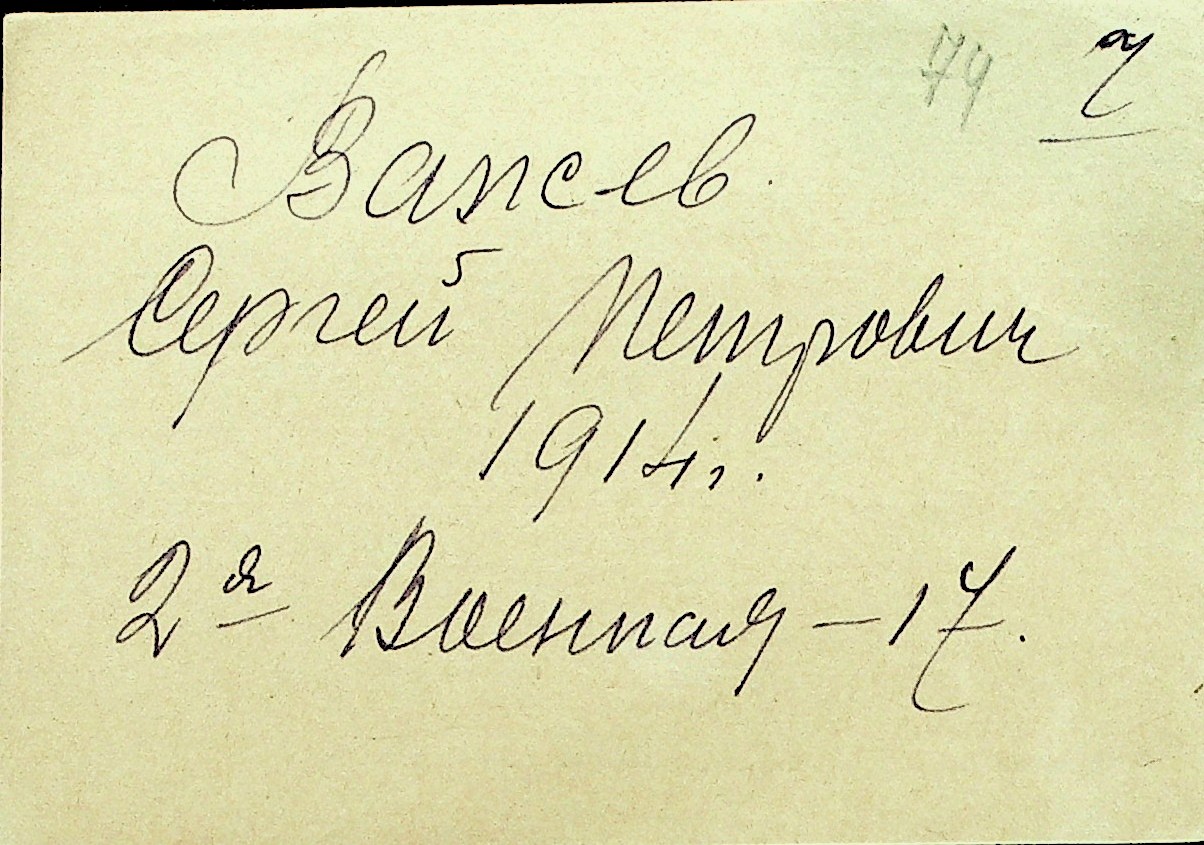 79 7
Важев
Сергей Петрович
1914г.
2я Военная - 17.